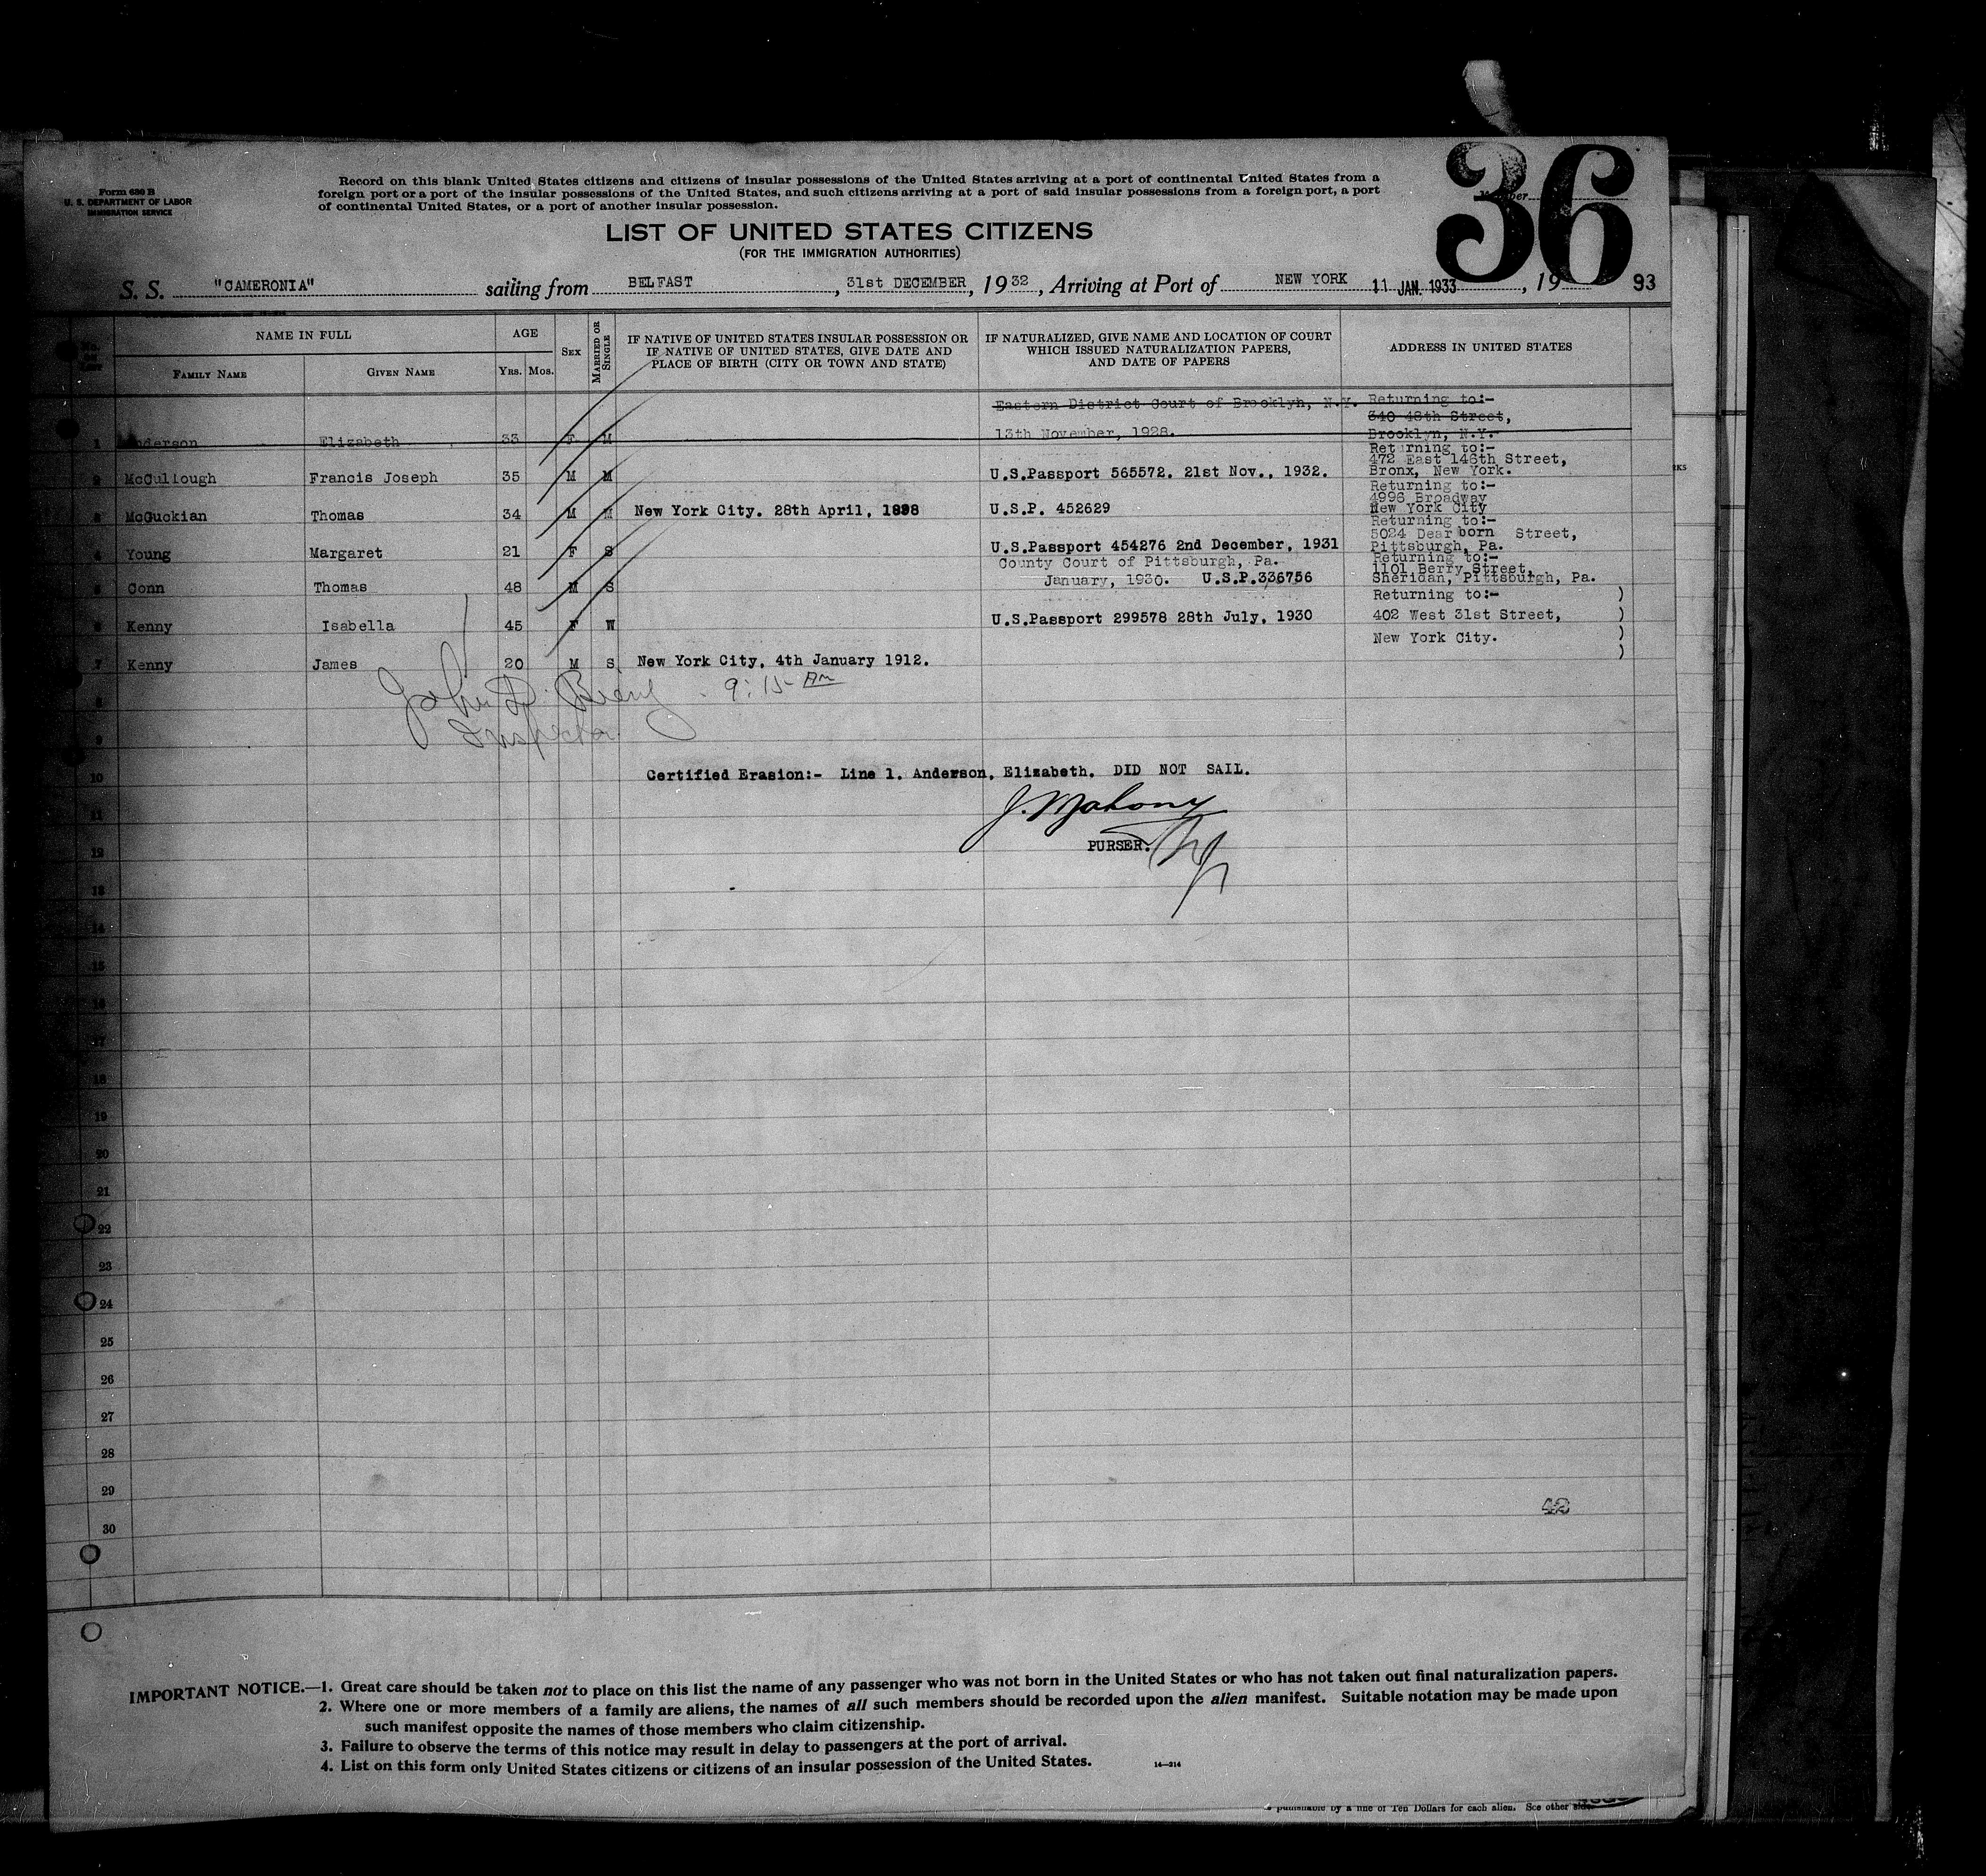 Form 630 B
U. S. DEPARTMENT OF LABOR
IMMIGRATION SERVICE
Record on this blank United States citizens and citizens of insular possessions of the United States arriving at a port of continental United States from a
foreign port or a port of the insular possessions of the United States, and such citizens arriving at a port of said insular possessions from a foreign port, a port
of continental United States, or a port of another insular possession.
36
LIST OF UNITED STATES CITIZENS
(FOR THE IMMIGRATION AUTHORITIES)
S. S. "CAMERONIA" sailing from BELFAST, 31st DECEMBER, 1932, Arriving at Port of NEW YORK 11 JAN. 1933, 19 93
NAME IN FULL
AGE
SEX
MARRIED OR SINGLE
IF NATIVE OF UNITED STATES INSULAR POSSESSION OR
IF NATIVE OF UNITED STATES, GIVE DATE AND
PLACE OF BIRTH (CITY OR TOWN AND STATE)
IF NATURALIZED, GIVE NAME AND LOCATION OF COURT
WHICH ISSUED NATURALIZATION PAPERS,
AND DATE OF PAPERS
ADDRESS IN UNITED STATES
FAMILY NAME
GIVEN NAME
YRS.
MOS.
Eastern District Court of Brooklyn, N.Y. Returning to:-
340 48th Street,
1 Anderson Elizabeth 33 F M 13th November, 1928. Brooklyn, N.Y.
Returning to:-
472 East 146th Street,
2 McCullough Francis Joseph 35 M M U.S.Passport 565572. 21st Nov., 1932. Bronx, New York.
Returning to:-
4996 Broadway
3 McGuckian Thomas 34 M M New York City. 28th April, 1898 U.S.P. 452629 New York City
Returning to:-
5024 Dearborn Street,
4 Young Margaret 21 F S U.S.Passport 454276 2nd December, 1931 Pittsburgh, Pa.
County Court of Pittsburgh, Pa. Returning to:-
1101 Berry Street,
5 Conn Thomas 48 M S January, 1930. U.S.P.336756 Sheridan, Pittsburgh, Pa.
Returning to:- )
6 Kenny Isabella 45 F W U.S.Passport 299578 28th July, 1930 402 West 31st Street, )
New York City. )
7 Kenny James 20 M S New York City, 4th January 1912. )
8
John D. 9:15 AM
Inspector
9
10 Certified Erasion:- Line 1. Anderson, Elizabeth. DID NOT SAIL.
11 J. Mahony
12 PURSER.
13
14
15
16
17
18
19
20
21
22
23
24
25
26
27
28
29
42
30
IMPORTANT NOTICE.—1. Great care should be taken not to place on this list the name of any passenger who was not born in the United States or who has not taken out final naturalization papers.
2. Where one or more members of a family are aliens, the names of all such members should be recorded upon the alien manifest. Suitable notation may be made upon
such manifest opposite the names of those members who claim citizenship.
3. Failure to observe the terms of this notice may result in delay to passengers at the port of arrival.
4. List on this form only United States citizens or citizens of an insular possession of the United States.
14—214
punishable by a fine of Ten Dollars for each alien. See other side.